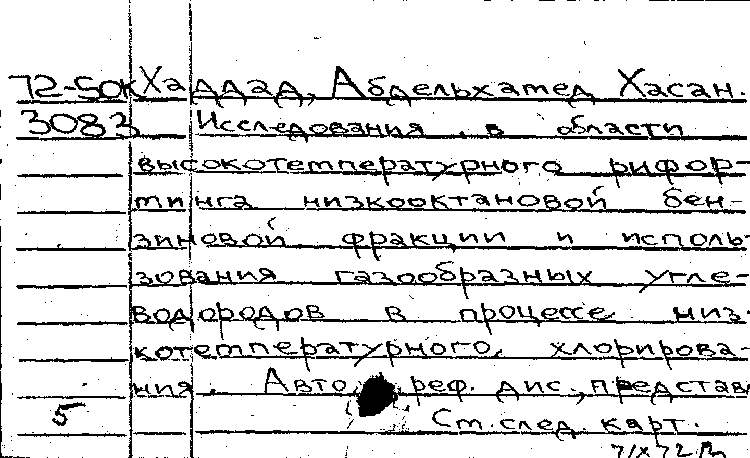 72-50к Хаддад, Абдельхамед Хасан.
3083 Исследования в области
высокотемпературного рифор-
минга низкооктановой бен-
зиновой фракции и исполь-
зования газообразных угле-
водородов в процессе низ-
котемпературного хлорирова-
ния. Автореф. дис., представ
5 Ст. след. карт.